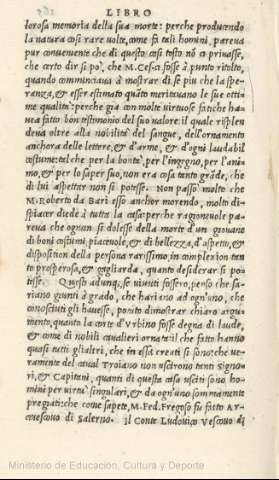 LIBRO
lorosa memoria della sua morte: perche producendo
la natura cosi rare volte, come fa tali homini, pareua
pur conueniente che di questo cosi tosto nō ci priuasse,
che certo dir si po, che M. Cesare fosse à punto ritolto,
quando comminciaua à mostrar di se piu che la spe-
ranza, & esser estimato quāto meritauano le sue otti-
me qualita: perche gia con molte virtuose fatiche hauea
fatto bon testimonio del suo ualore: il quale risplen
deua oltre alla nobilità del sangue, dell'ornamento
anchora delle lettere, & d'arme, & d'ogni laudabil
costume: tal che per la bontà, per l'ingegno, per l'ani-
mo, & per lo saper suo, non era cosa tanto grāde, che
di lui aspettar non si potesse. Non passò molto che
M. Roberto da Bari esso anchor morendo, molto di-
spiacer diede à tutta la casa: perche ragioneuole pa-
reua che ognun si dolesse della morte d'un giouane
di boni costumi, piaceuole, & di bellezza, d'aspetto, &
disposition della persona rarissimo, in complexion tan
to prosperosa, & gagliarda, quanto desiderar si po-
tesse. Questi adunq;, se uiuuti fossero, penso che sa-
riano giunti à grado, che hariano ad ogn'uno, che
conosciuti gli hauesse, potuto dimostrar chiaro argu-
mento, quanto la corte d'Vrbino fosse degna di laude,
& come di nobili caualieri ornata: il che fatto hanno
quasi tutti gli altri, che in essa creati si sono: che ve-
ramente del caual Troiano non uscirono tanti Signo-
ri, & Capitani, quanti di questa casa usciti sono ho-
mini per virtu singulari, & da ogn'uno sommamente
pregiati: che come sapete, M. Fed. Fregoso fu fatto Ar-
ciuescouo di Salerno. il Conte Ludouico Vescouo di
Ministerio de Educación, Cultura y Deporte